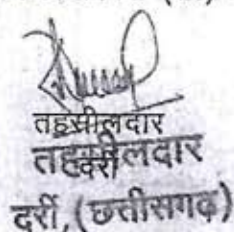 तहसीलदार
दर्री
तहसीलदार
दर्री, (छत्तीसगढ़)